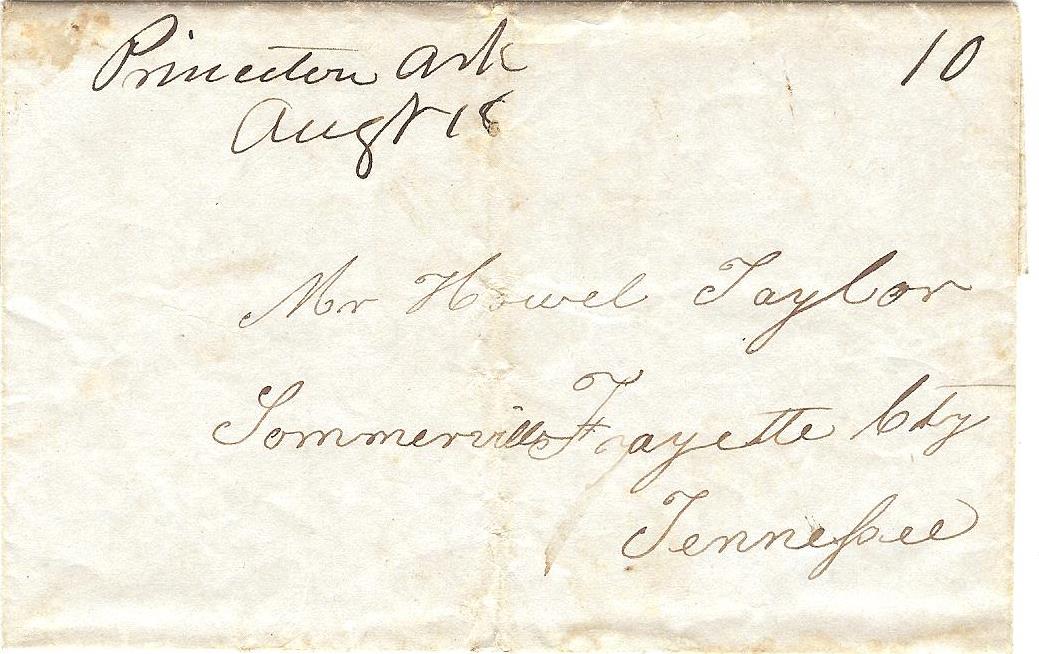 Princeton Ark 10
Augt 18
Mr Howel Taylor
Sommerville Fayette Cty
Tennessee